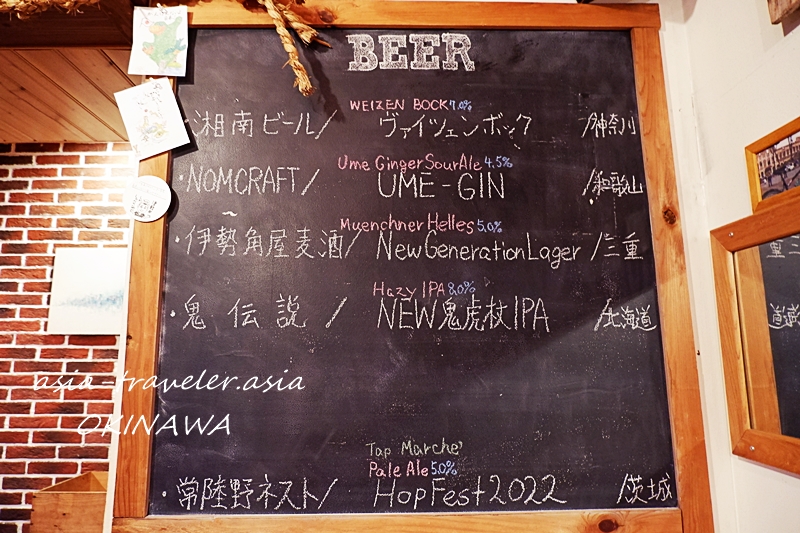 BEER
WEIZEN BOCK 7.0%
・湘南ビール/ ヴァイツェンボック /神奈川
Ume Ginger Sour Ale 4.5%
・NOMCRAFT/ UME-GIN /和歌山
Muenchner Helles 5.0%
・伊勢角屋麦酒/ New Generation Lager /三重
Hazy IPA 8.0%
・鬼伝説/ NEW鬼虎杖IPA /北海道
asia-traveler.asia
OKINAWA
Tap Marche'
Pale Ale 5.0%
・常陸野ネスト/ Hop Fest 2022 /茨城